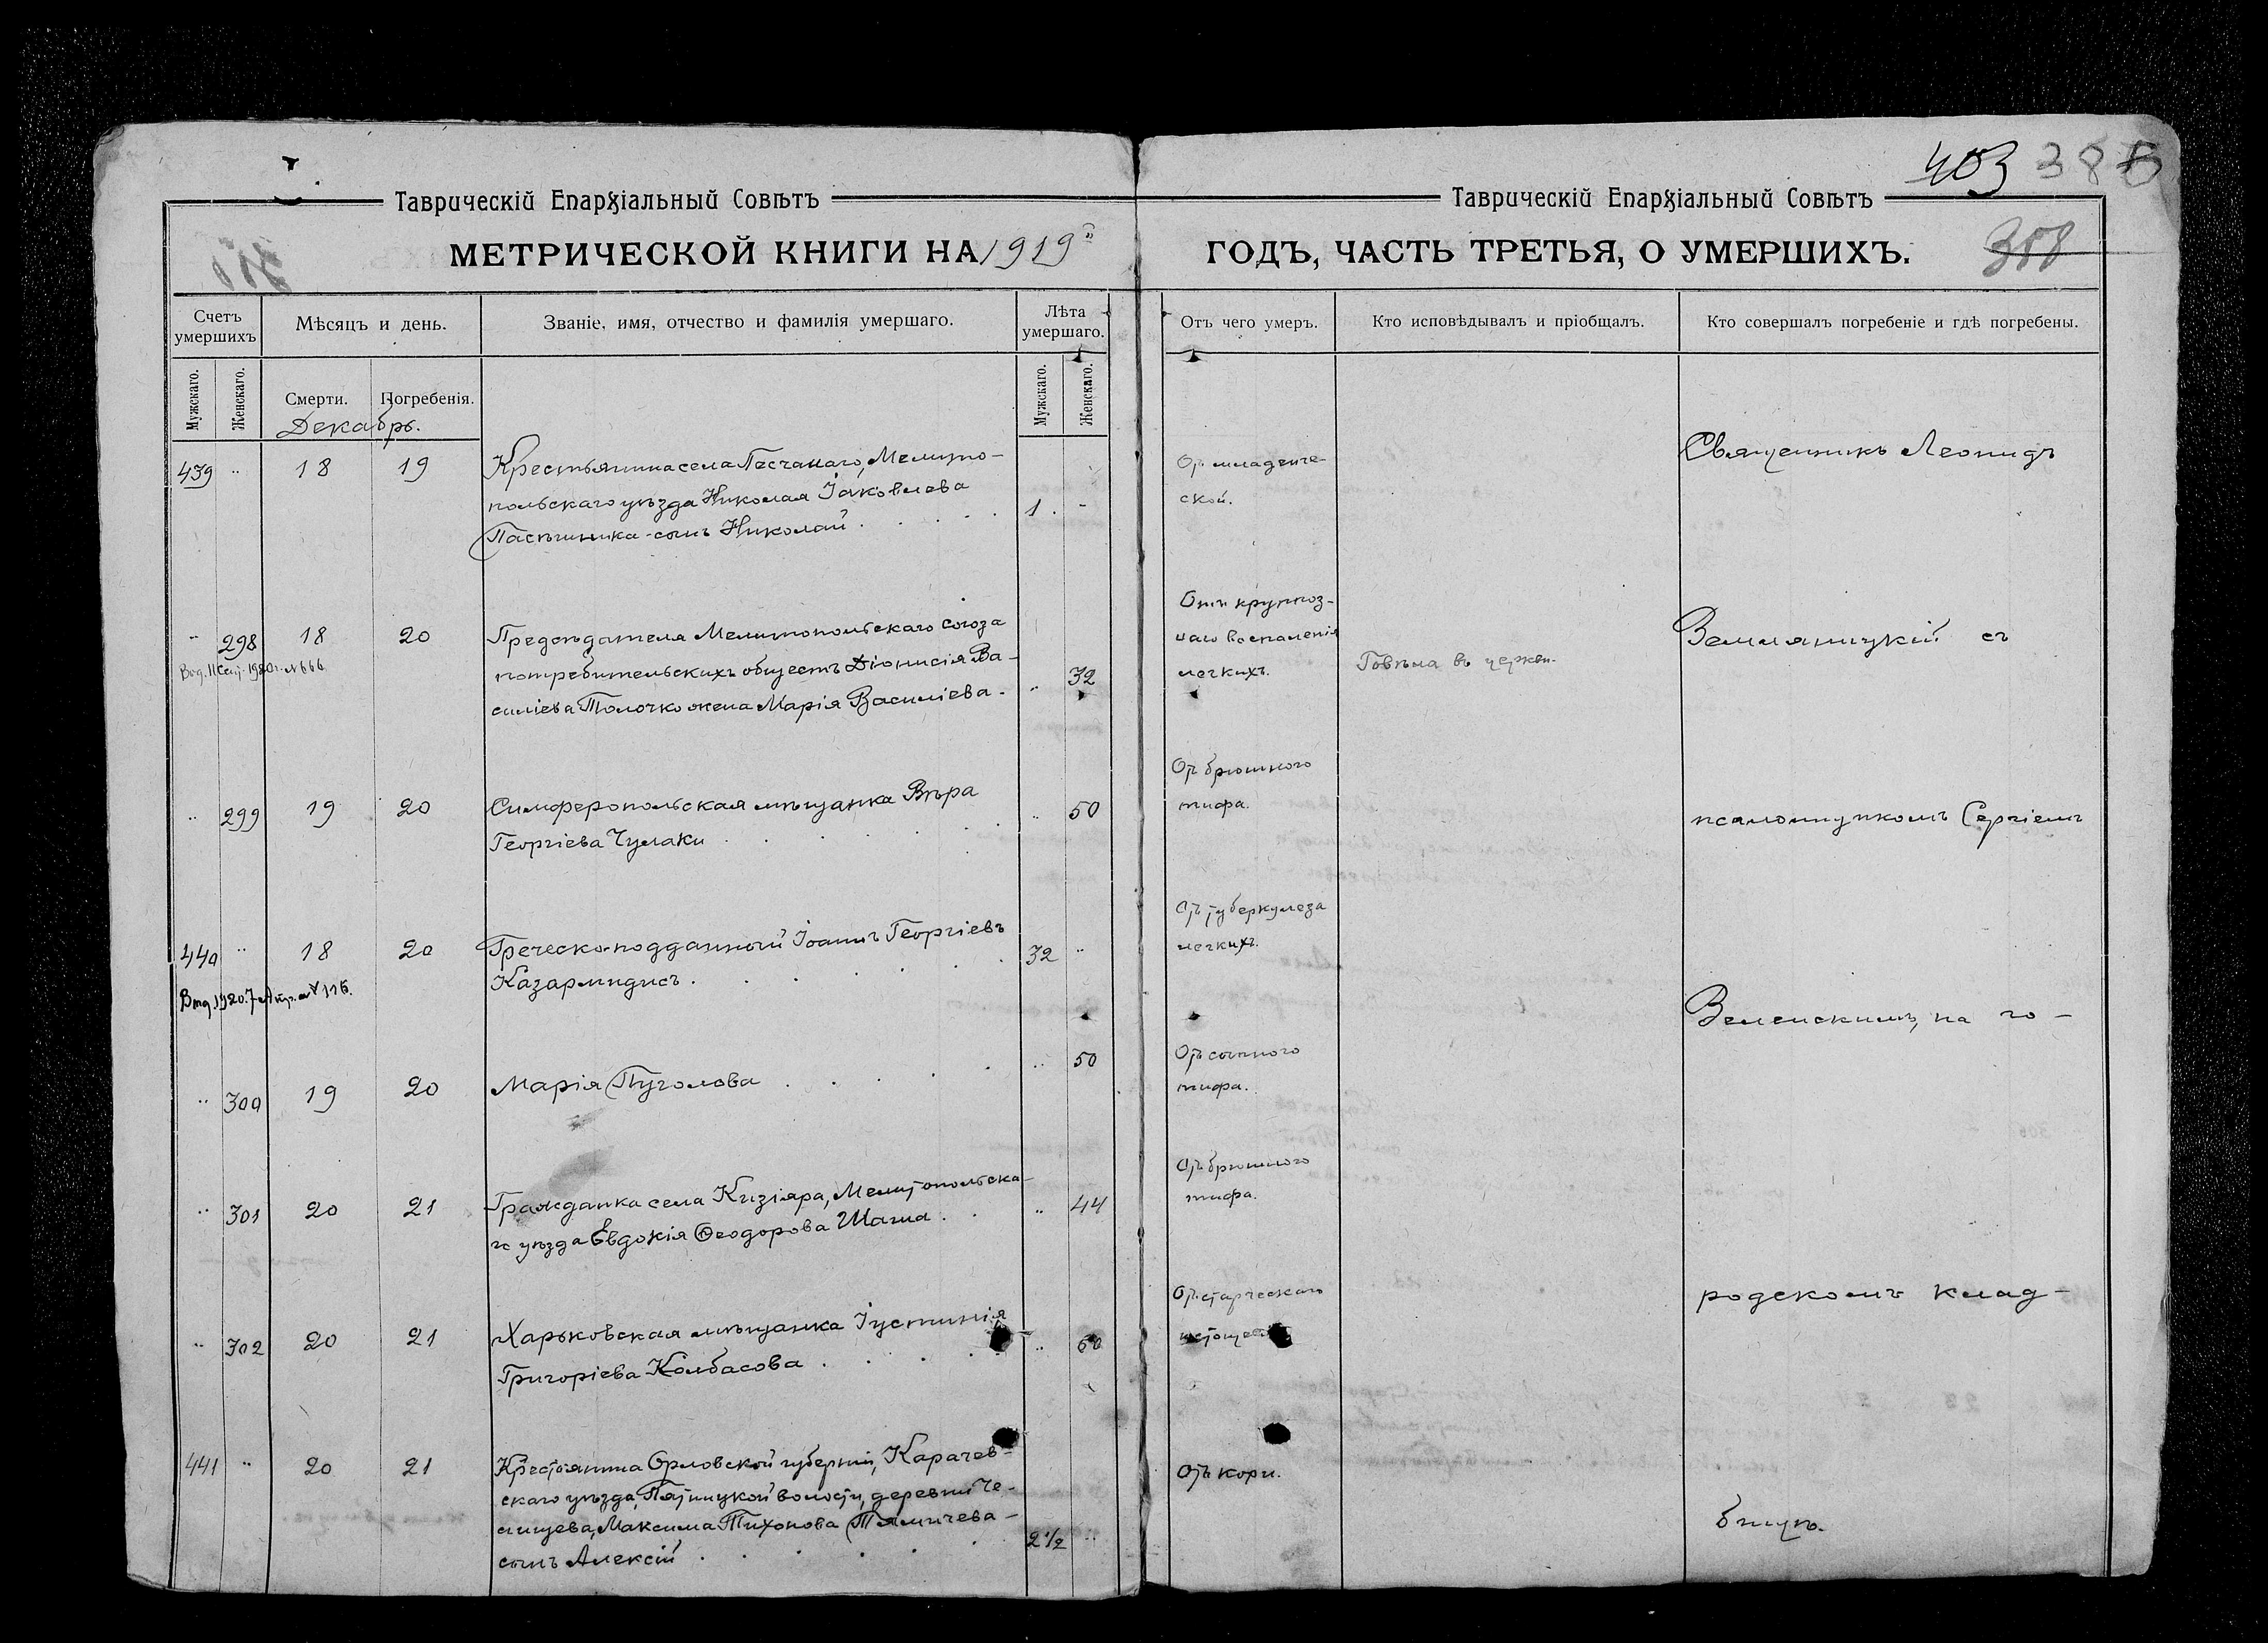 403 385
Таврическій Епархіальный Совѣтъ
Таврическій Епархіальный Совѣтъ
МЕТРИЧЕСКОЙ КНИГИ НА 1919й
ГОДЪ, ЧАСТЬ ТРЕТЬЯ, О УМЕРШИХЪ.
358
Счетъ умершихъ
Мѣсяцъ и день.
Званіе, имя, отчество и фамилія умершаго.
Лѣта умершаго.
Отъ чего умеръ.
Кто исповѣдывалъ и пріобщалъ.
Кто совершалъ погребеніе и гдѣ погребены.
Мужскаго.
Женскаго.
Смерти.
Погребенія.
Мужскаго.
Женскаго.
Декабрь.
439 " 18 19
Крестьянина села Песчанаго, Мелито-
польскаго уѣзда Николая Іаковлева
Пасѣчника - сынъ Николай . . . . .
1. -
Отъ младенче-
ской.
Священникъ Леонидъ
" 298 18 20
Предсѣдателя Мелитопольскаго союза
потребительскихъ обществъ Діонисія Ва-
силіева Толочко жена Марія Василіева.
" 32
Отъ крупоз-
наго воспаленія
легкихъ.
Говѣла въ церкви.
Земляницкій съ
" 299 19 20
Симферопольская мѣщанка Вѣра
Георгіева Чулаки . . . . . .
" 50
Отъ брюшного
тифа.
псаломщикомъ Сергіемъ
440 " 18 20
Выд. 1920. 7 Апр. № 116.
Греческо-подданный Іоаннъ Георгіевъ
Казармидисъ . . . . . .
32 "
Отъ туберкулеза
легкихъ.
Зеленскимъ, на го-
" 300 19 20
Марія Пуголова . . . . .
" 50
Отъ сыпного
тифа.
" 301 20 21
Гражданка села Кизіяра, Мелитопольска-
го уѣзда Евдокія Ѳеодорова Шагла . .
" 44
Отъ брюшного
тифа.
родскомъ клад-
" 302 20 21
Харьковская мѣщанка Іустинія
Григоріева Колбасова . . . . .
" 60
Отъ старческаго
441 " 20 21
Крестьянина Орловской губерніи, Карачев-
скаго уѣзда, Пятницкой волости, деревни Че-
лищева, Максима Тихонова Тямичева -
сынъ Алексій . . . . . .
2 1/2 "
Отъ кори.
бищѣ.